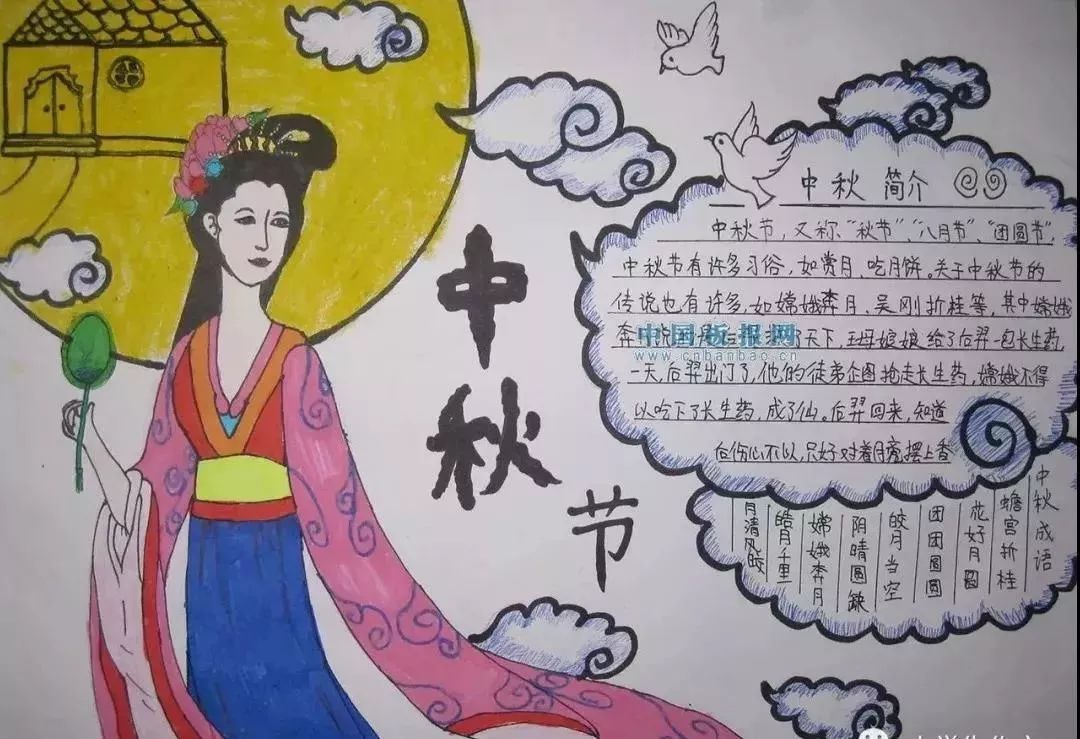 中秋节
中秋 简介
中秋节，又称“秋节”、“八月节”、“团圆节”，
中秋节有许多习俗，如赏月、吃月饼。关于中秋节的
传说也有许多，如嫦娥奔月、吴刚折桂等，其中嫦娥
奔 了天下，王母娘娘给了后羿一包长生药
一天，后羿出门了，他的徒弟企图抢走长生药，嫦娥不得
以吃下了长生药，成了仙。后羿回来，知道
后伤心不以，只好对着月亮摆上香
中秋成语
蟾宫折桂
花好月圆
团团圆圆
皎月当空
阴晴圆缺
嫦娥奔月
皓月千
月清风皎
中国板报网
www.cnbanbao.cn